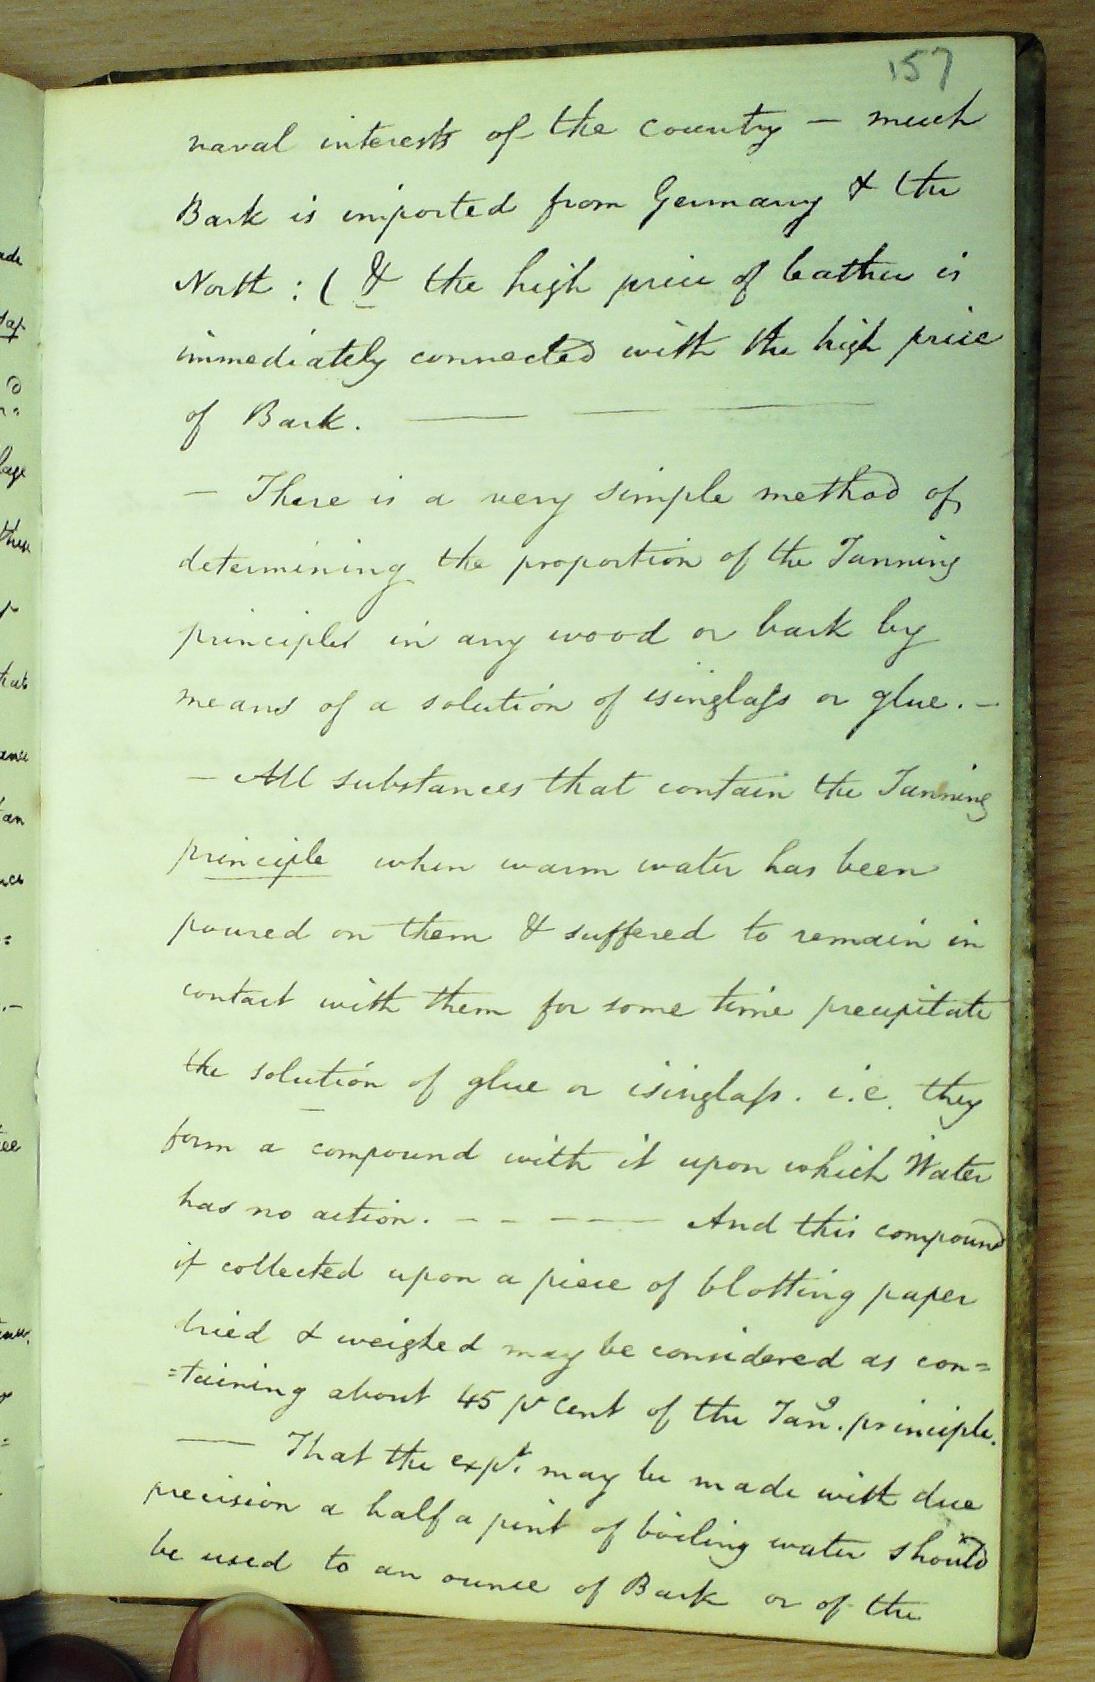 157
naval interests of the country — much
Bark is imported from Germany & the
North : ( & the high price of leather is
immediately connected with the high price
of Bark. — — —
— There is a very simple method of
determining the proportion of the Tanning
principles in any wood or bark by
means of a solution of isinglaſs or glue. —
— All substances that contain the Tanning
principle when warm water has been
poured on them & suffered to remain in
contact with them for some time precipitate
the solution of glue or isinglaſs. i.e. they
form a compound with it upon which Water
has no action. - - - - — And this compound
if collected upon a piece of blotting paper
dried & weighed may be considered as con=
=taining about 45 pr Cent of the Tang. principle.
— That the expt. may be made with due
precision a half a pint of boiling water should
be used to an ounce of Bark or of the